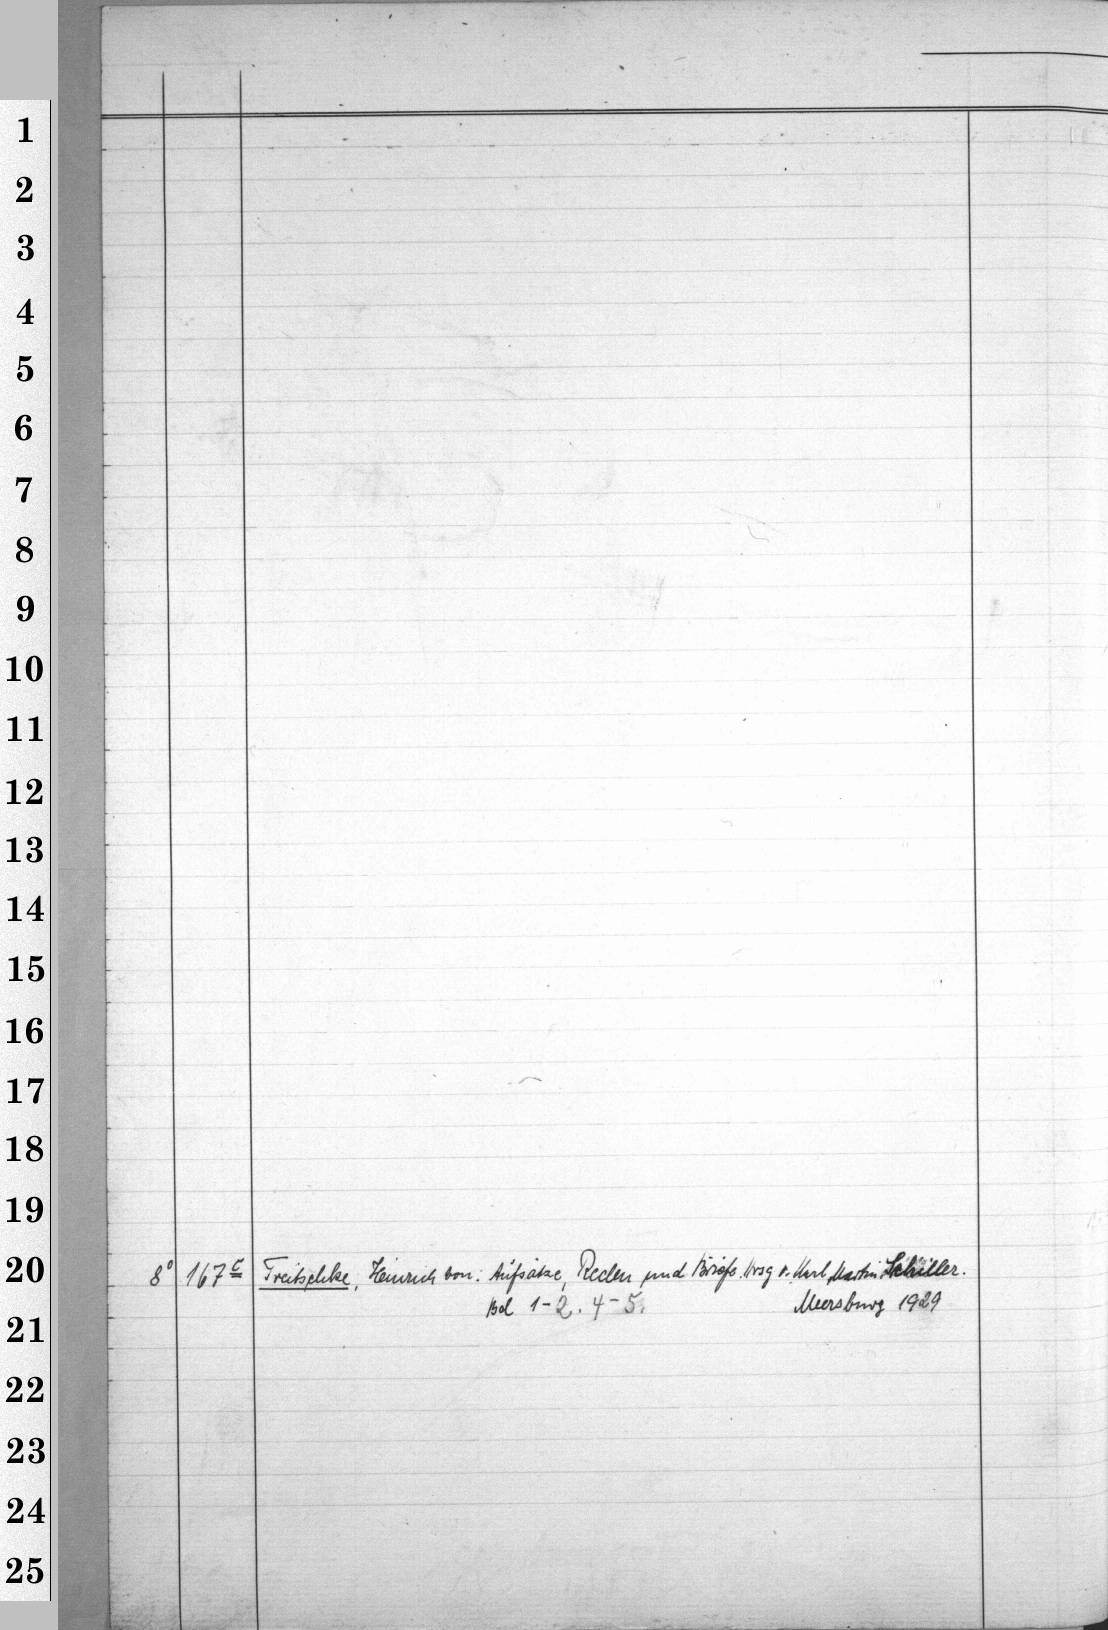 1
2
3
4
5
6
7
8
9
10
11
12
13
14
15
16
17
18
19
20
21
22
23
24
25
8° 167 c Treitschke, Heinrich von: Aufsätze, Reden und Briefe. Hrsg v. Karl Martin Schiller.
Bd 1-2. 4-5. Meersburg 1929